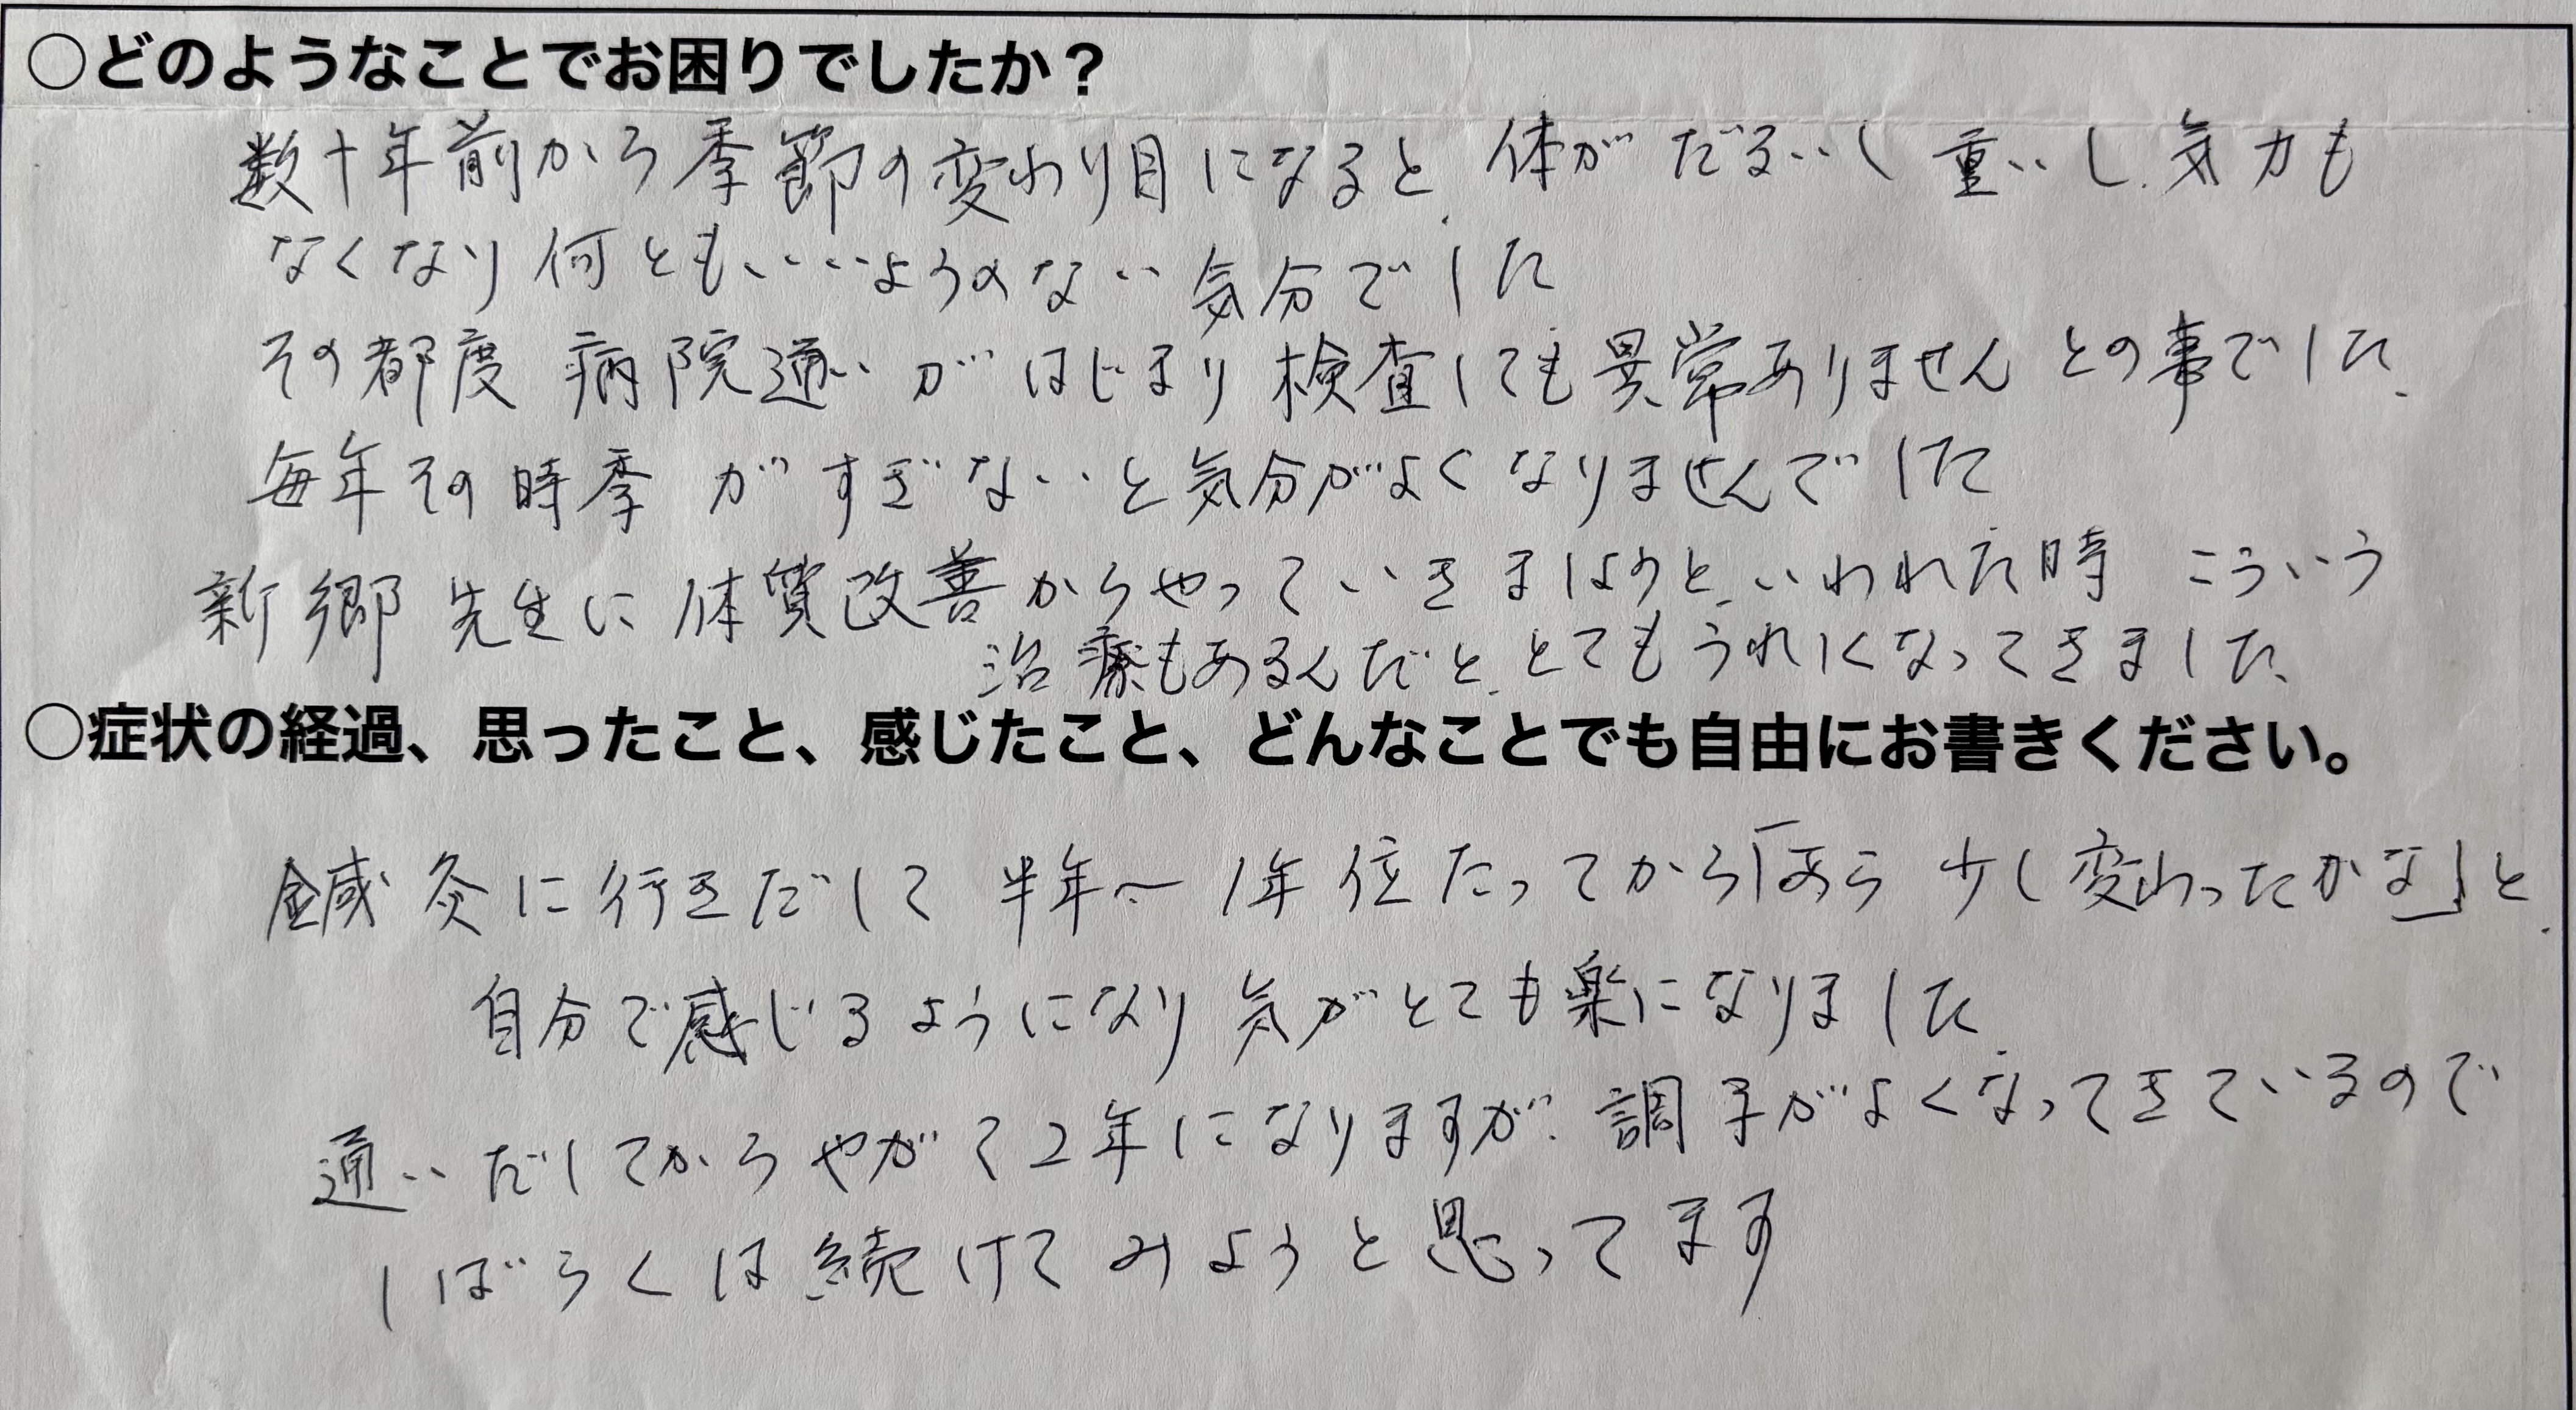 ○どのようなことでお困りでしたか？
数十年前から季節の変わり目になると、体がだるいし重いし、気力も
なくなり何ともいいようのない気分でした
その都度病院通いがはじまり検査しても異常ありませんとの事でした、
毎年その時季がすぎないと気分がよくなりませんでした
新郷先生に体質改善からやっていきましょうと、いわれた時こういう
治療もあるんだと、とてもうれしくなってきました、
○症状の経過、思ったこと、感じたこと、どんなことでも自由にお書きください。
鍼灸に行きだして半年〜1年位たってから「あら少し変わったかな」と、
自分で感じるようになり気がとても楽になりました、
通いだしてからやがて2年になりますが、調子がよくなってきているので
しばらくは続けてみようと思ってます